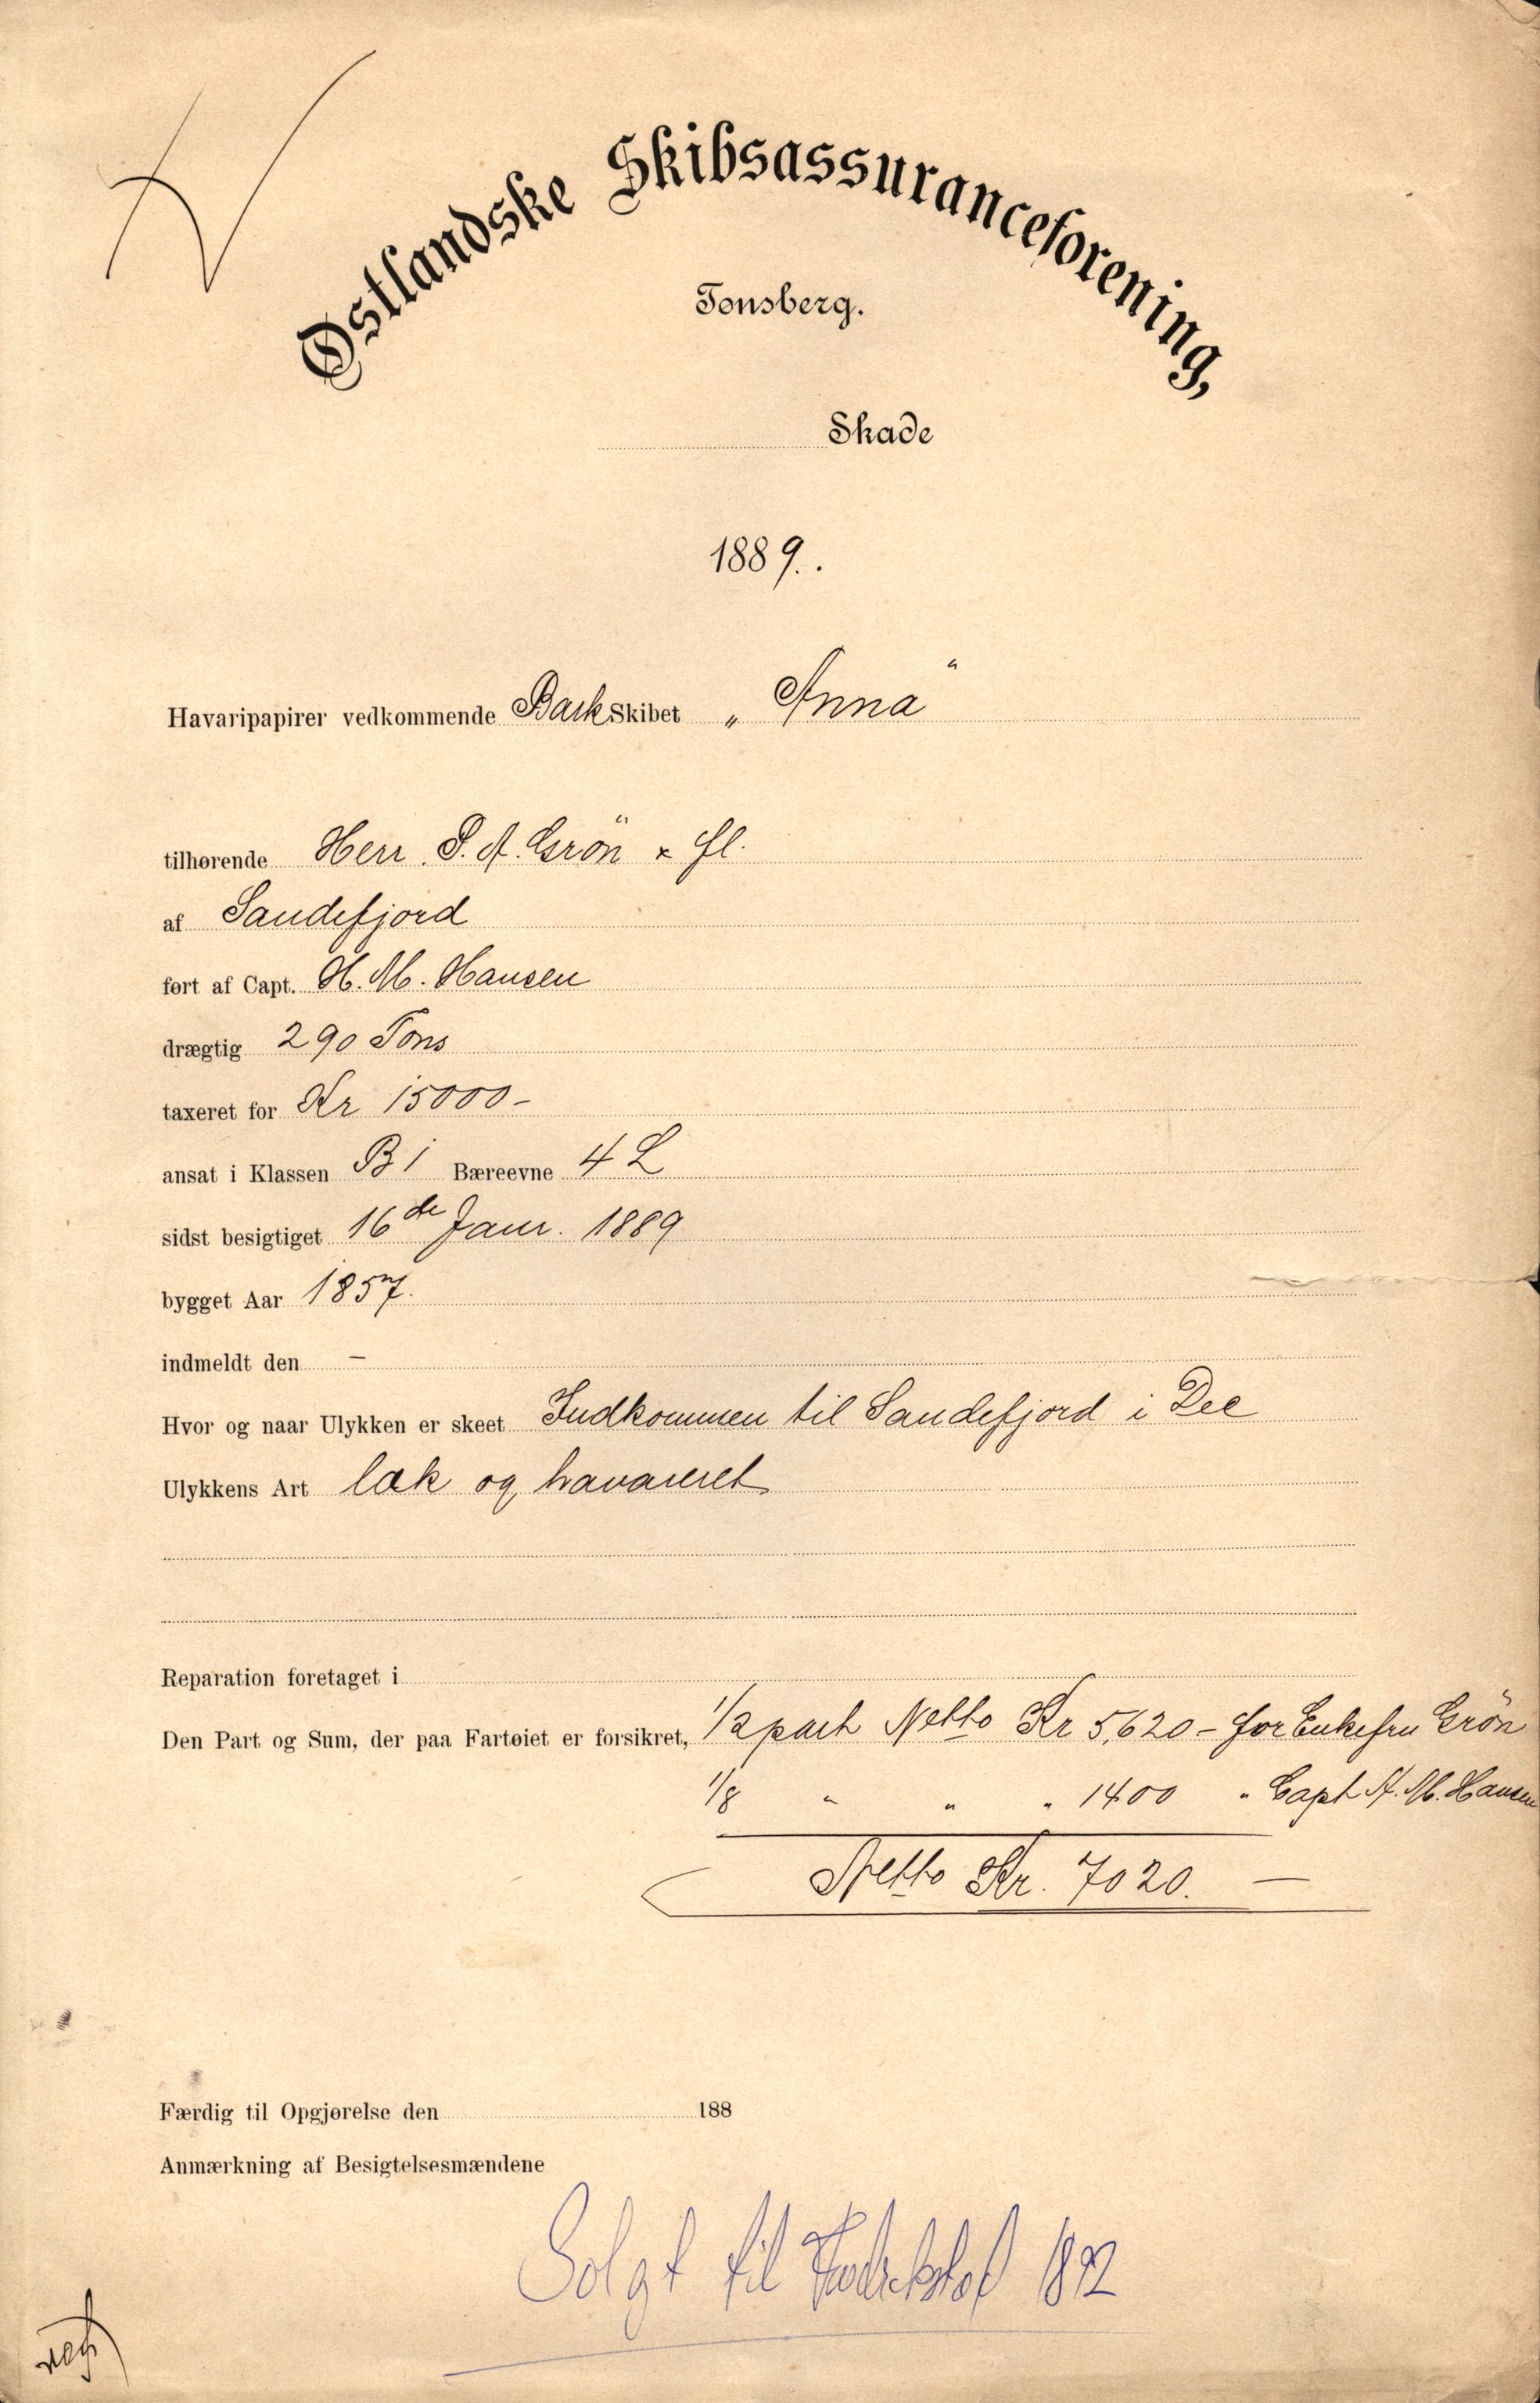 Østlandske Skibsassuranceforening,
Tønsberg.
Skade
1889.
Havaripapirer vedkommende Bark Skibet „Anna“
tilhørende Herr P. A. Grön & fl.
af Sandefjord
ført af Capt. H. M. Hansen
drægtig 290 Tons
taxeret for Kr 15000-
ansat i Klassen B1 Bæreevne 4 L
sidst besigtiget 16de Janr. 1889
bygget Aar 1857.
indmeldt den -
Hvor og naar Ulykken er skeet Indkommen til Sandefjord i Dec
Ulykkens Art læk og havareret
Reparation foretaget i
Den Part og Sum, der paa Fartøiet er forsikret, 1/2 part Netto Kr 5,620 - for Enkefru Grön
1/8 " " " 1400 " Capt H. M. Hansen
Netto Kr. 7020. —
Færdig til Opgjørelse den 188
Anmærkning af Besigtelsesmændene
Solgt til 1892